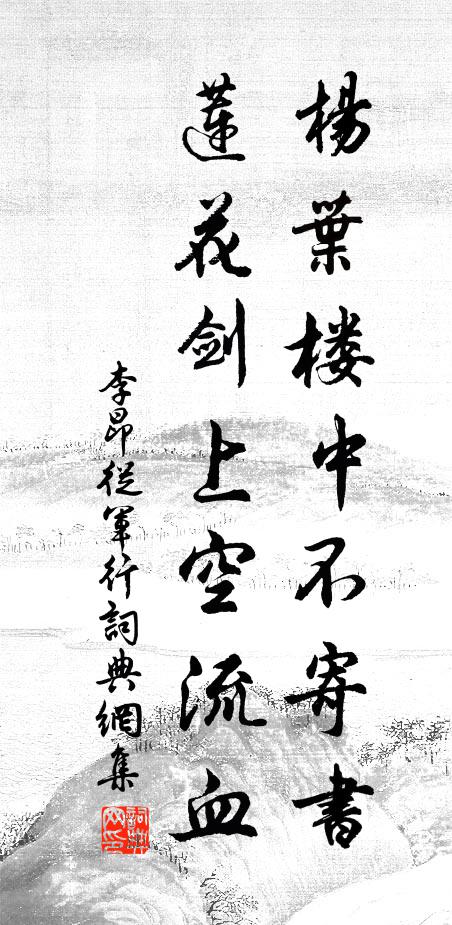 楊葉楼中不寄書
蓮花剑上空流血
李昂從軍行詞典網集